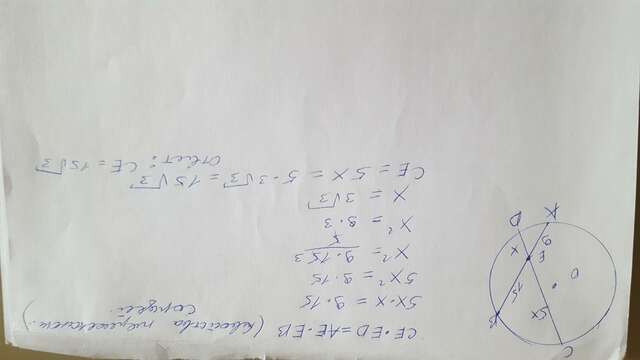 CE · ED = AE · EB (свойство пересекающ.
хорд)
5x · x = 9 · 15
5x² = 9 · 15
x² = 9 · 15 3
5
x² = 9 · 3
x = 3√3
CE = 5x = 5 · 3√3 = 15√3
Ответ: CE = 15√3
A
D
9
x
E
O
15
5x
B
C